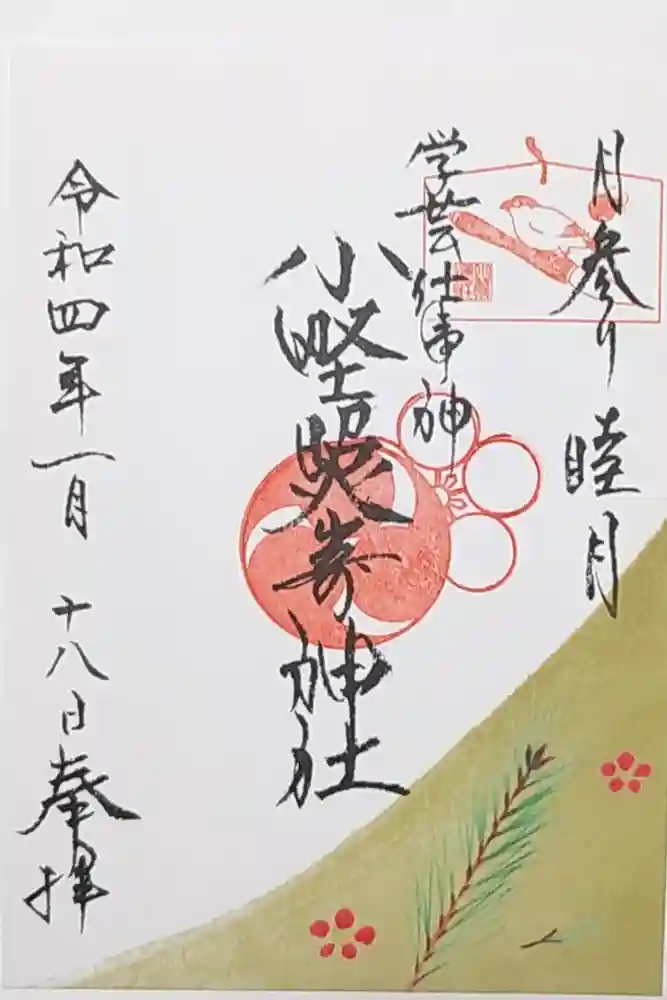 月参り 睦月
学芸仕事神
小野照崎神社
令和四年一月 十八日奉拝